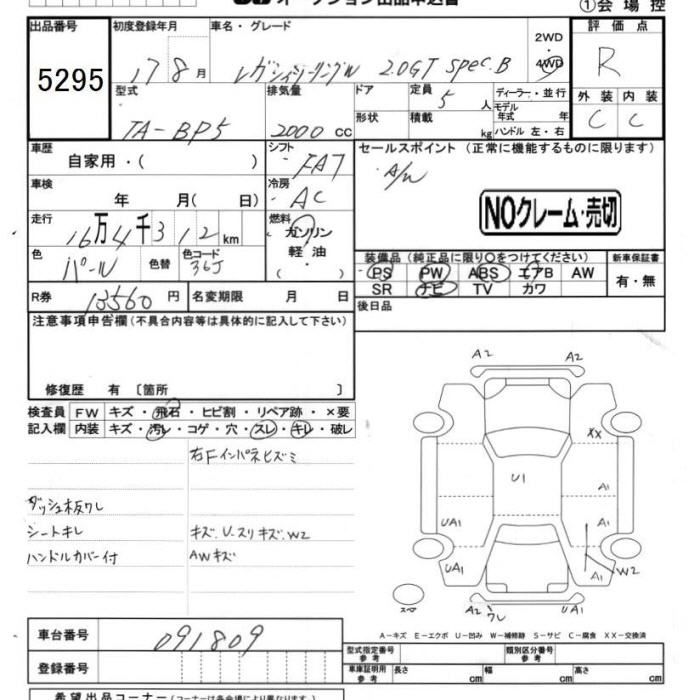 ①会場控
出品番号 初度登録年月 車名・グレード 2WD 評価点
5295 17 8月 レガシィツーリングW 2.0GT spec.B 4WD R
型式 排気量 ドア 定員 5人 ディーラー・並行 外装 内装
TA-BP5 2000cc 形状 積載 kg モデル年式 年 ハンドル 左・右 C C
車歴 シフト セールスポイント (正常に機能するものに限ります)
自家用・( ) FA7 A/W
車検 冷房
年 月( 日) AC NOクレーム・売切
走行 燃料
16万4千312km ガソリン
色 色替 色コード 軽油 装備品 (純正品に限り○をつけてください) 新車保証書
パール 36J ( ・ ) PS PW ABS エアB AW 有・無
R券 13560円 名変期限 月 日 SR ナビ TV カワ
注意事項申告欄 (不具合内容等は具体的に記入して下さい) 後日品
修復歴 有 〔箇所 〕
検査員 FW キズ・飛石・ヒビ割・リペア跡・×要
記入欄 内装 キズ・汚レ・コゲ・穴・スレ・キレ・破レ
右Fインパネヒズミ
ダッシュ板ワレ
シートキレ キズ.U-スリキズ.W2
ハンドルカバー付 AWキズ
A2 A2
XX
U1 A1
UA1 A1
UA1 A1 W2
スペア A2 ワレ UA1
A-キズ E-エクボ U-凹み W-補修跡 S-サビ C-腐食 XX-交換済
車台番号 091809
型式指定番号 参考 類別区分番号 参考
登録番号 車庫証明用 参考 長さ cm 幅 cm 高さ cm
希望出品コーナー